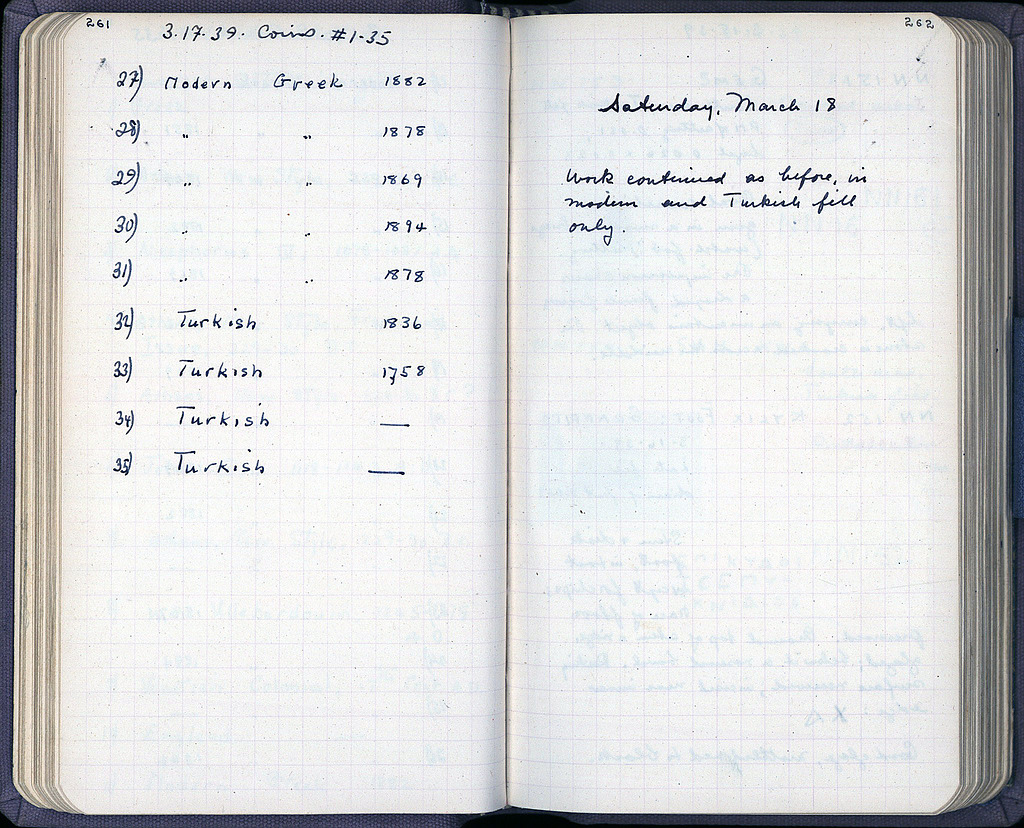 261
3.17.39. Coins. #1-35
27) Modern Greek 1882
28) " " " 1878
29) " " 1869
30) " " 1894
31) " " 1878
32) Turkish 1836
33) Turkish 1758
34) Turkish —
35) Turkish —
262
Saturday, March 18
Work continued as before, in
modern and Turkish fill
only